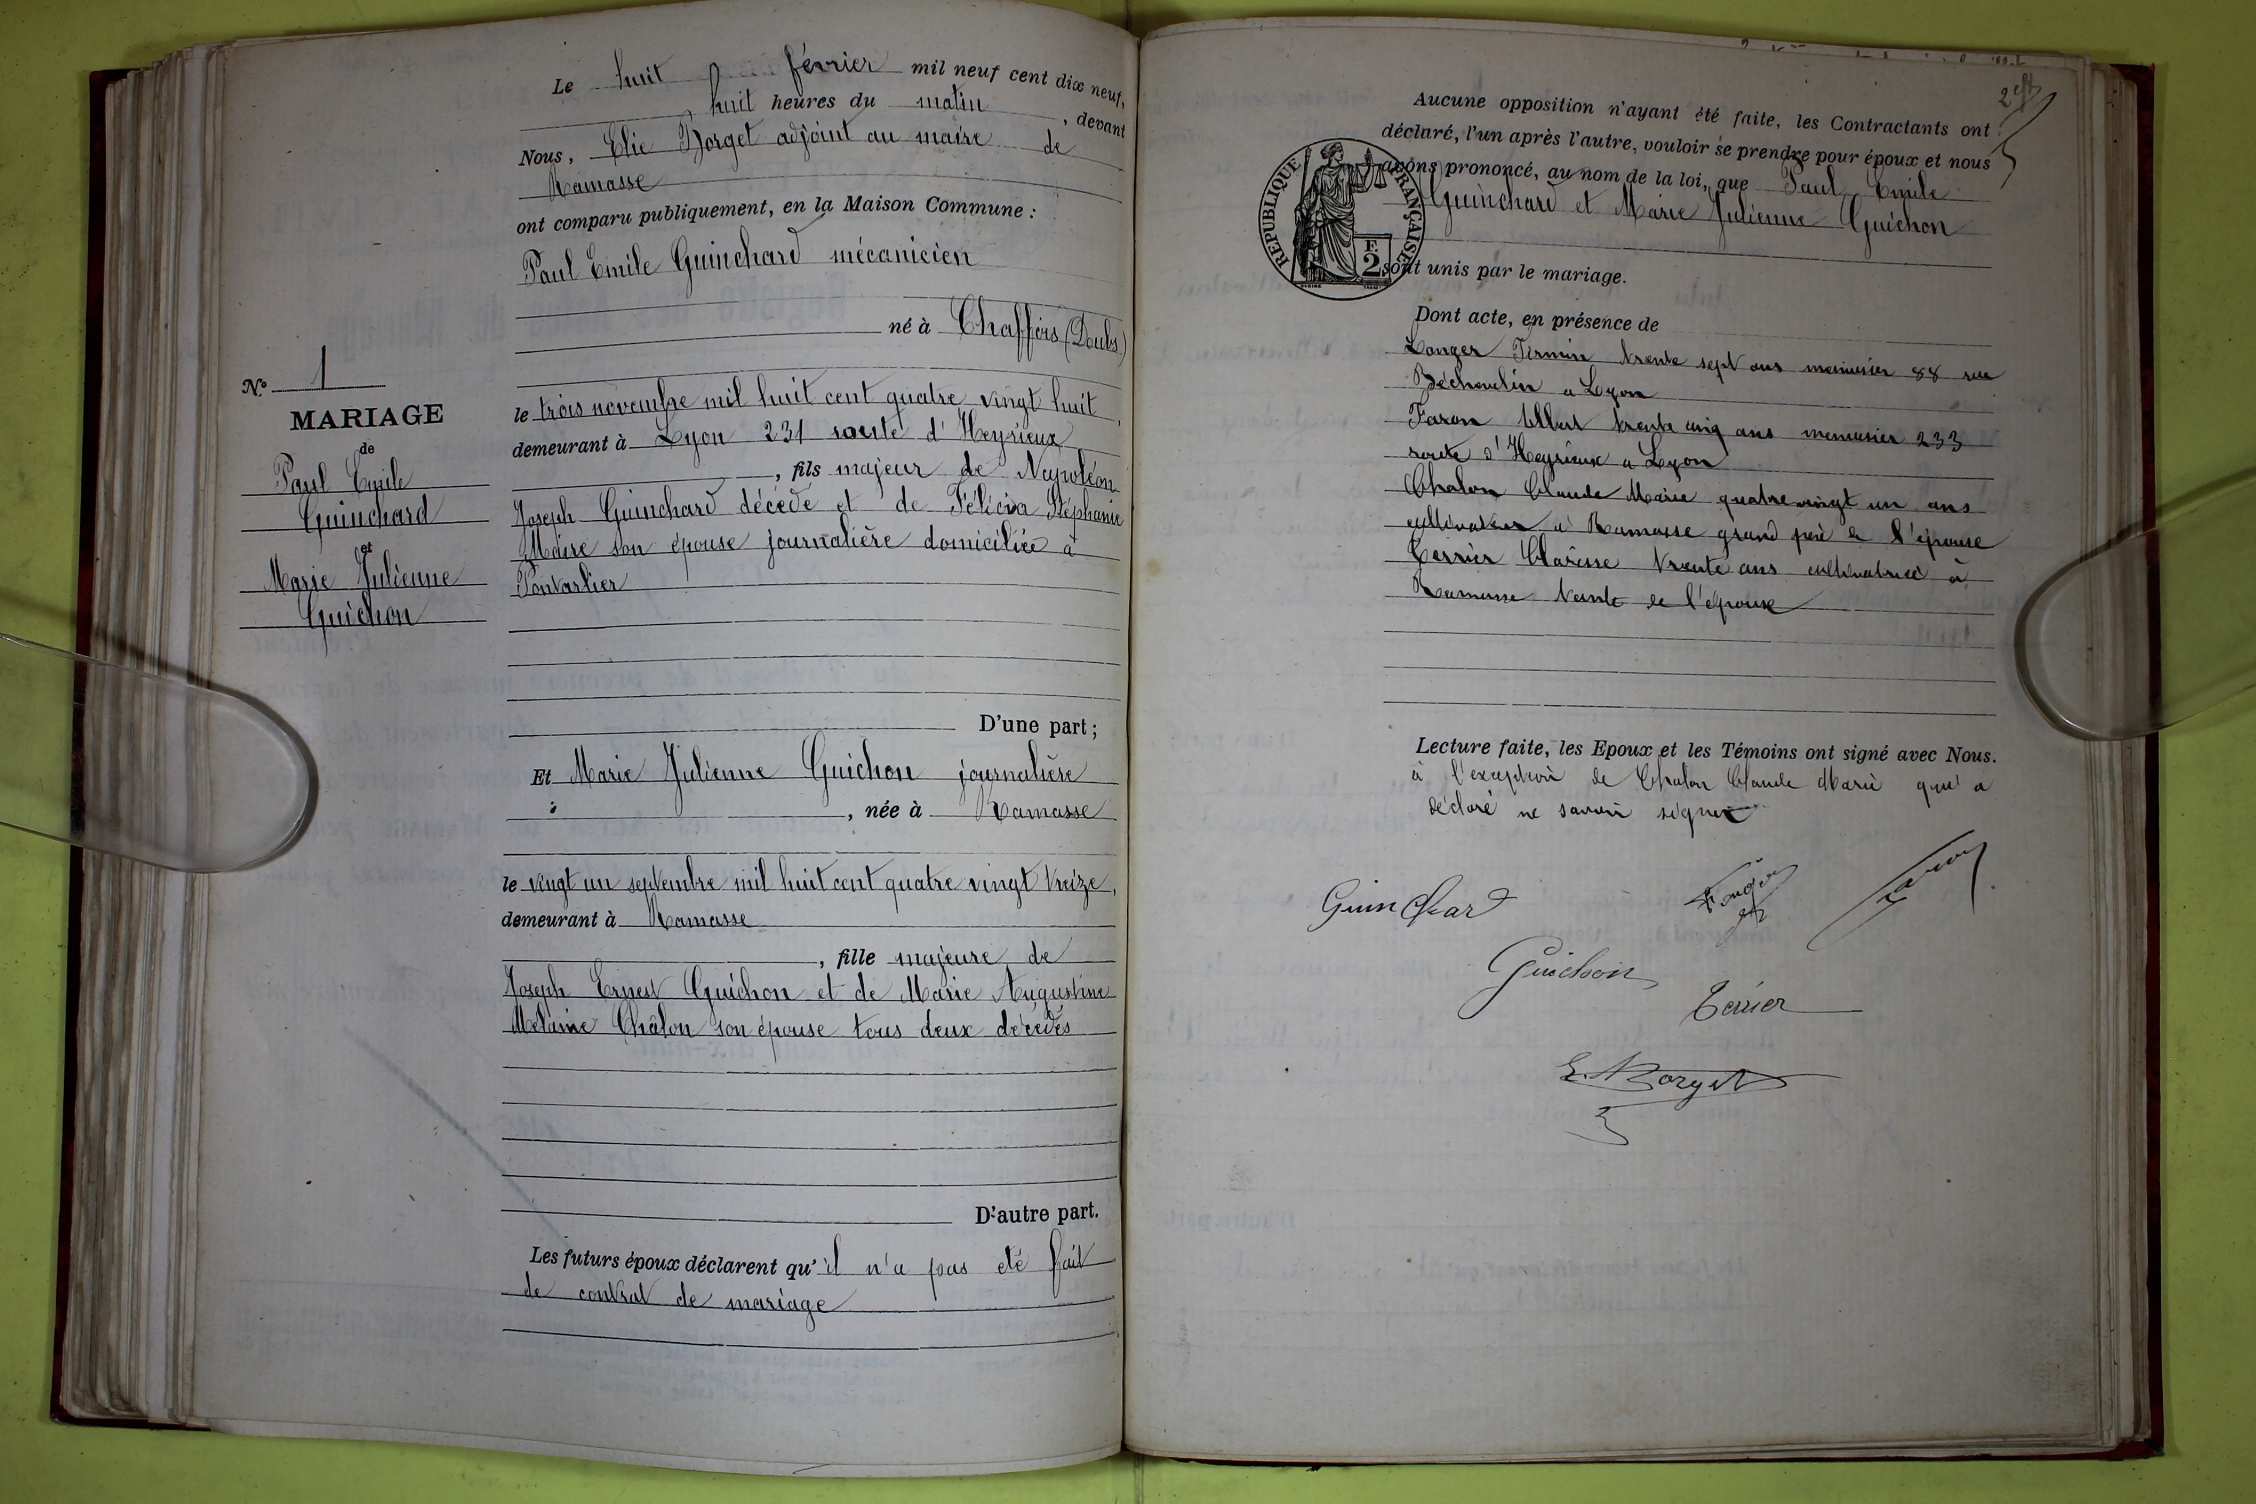 Le huit février mil neuf cent dix neuf,
huit heures du matin, devant
Nous, Elie Borget adjoint au maire de
Ramasse
ont comparu publiquement, en la Maison Commune :
Paul Emile Guinchard mécanicien
né à Chaffois (Doubs)
le trois novembre mil huit cent quatre vingt huit,
demeurant à Lyon 231 route d'Heyrieux
, fils majeur de Napoléon
Joseph Guinchard décédé et de Félicia Stéphanie
Maire son épouse journalière domiciliée à
Pontarlier
D'une part ;
Et Marie Julienne Guichon journalière
, née à Ramasse
le vingt un septembre mil huit cent quatre vingt treize,
demeurant à Ramasse
, fille majeure de
Joseph Ernest Guichon et de Marie Augustine
Melanie Châlon son épouse tous deux décédés
D'autre part.
Les futurs époux déclarent qu'il n'a pas été fait
de contrat de mariage
N° 1
MARIAGE
de
Paul Emile
Guinchard
et
Marie Julienne
Guichon
Aucune opposition n'ayant été faite, les Contractants ont
déclaré, l'un après l'autre, vouloir se prendre pour époux et nous
avons prononcé, au nom de la loi, que Paul Emile
Guinchard et Marie Julienne Guichon
sont unis par le mariage.
RÉPUBLIQUE FRANÇAISE
F.
2
Dont acte, en présence de
Longer Firmin trente sept ans menuisier 88 rue
Béchevelin a Lyon
Faron Albert trente cinq ans menuisier 233
route d'Heyrieux a Lyon
Chalon Claude Marie quatre vingt un ans
cultivateur a Ramasse grand père de l'épouse
Terrier Clarisse trente ans cultivatrice à
Ramasse tante de l'épouse
Lecture faite, les Epoux et les Témoins ont signé avec Nous.
à l'exception de Chalon Claude Marie qui a
déclaré ne savoir signer
Guinchard
Faron
Guichon
Terrier
E. Borget